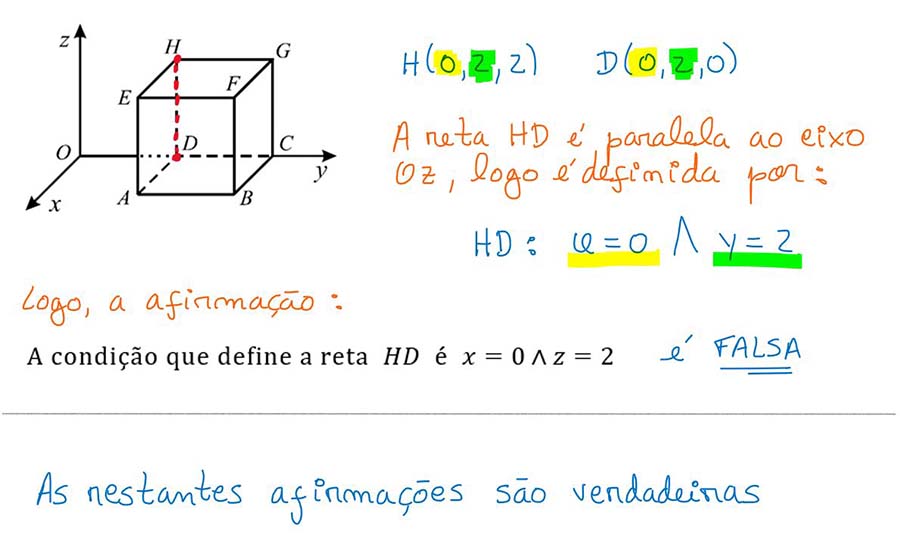 z
H
G
E
F
D
O
C
y
x
A
B
H(0,2,2) D(0,2,0)
A reta HD é paralela ao eixo
Oz, logo é definida por:
HD: x=0 ∧ y=2
Logo, a afirmação:
A condição que define a reta HD é x = 0 ∧ z = 2 é FALSA
As restantes afirmações são verdadeiras